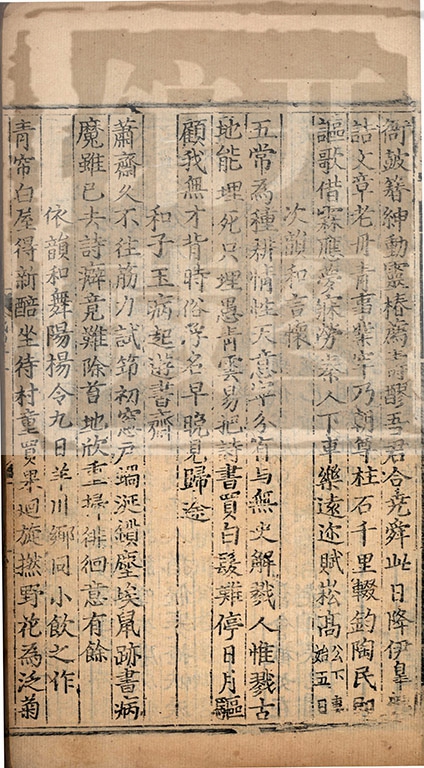 衙鼓簪紳動靈椿薦壽醪吾君合堯舜此日降伊皐
詰文章老丹青事業牢乃朝尊柱石千里輟鈞陶民即
謳歌借霖應夢寐勞棠人下車樂遠迩賦崧髙公下車始五日
次韻和言懷
五常為種耕情性天意寧分有与無史解戮人惟戮古
地能埋死只埋愚青雲易把詩書買白髮難停日月驅
顧我無才背時俗浮名早晚見歸途
和子玉病起遊書齋
蕭齋久不往筋力試節初窓戸蝸涎鎖塵埃鼠跡書病
魔雖已去詩癖竟難除首地欣重掃徘徊意有餘
依韻和舞陽楊令九日羊川鄉同小飲之作
青帘白屋得新醅坐待村童買果迴旋撚野花為泛菊